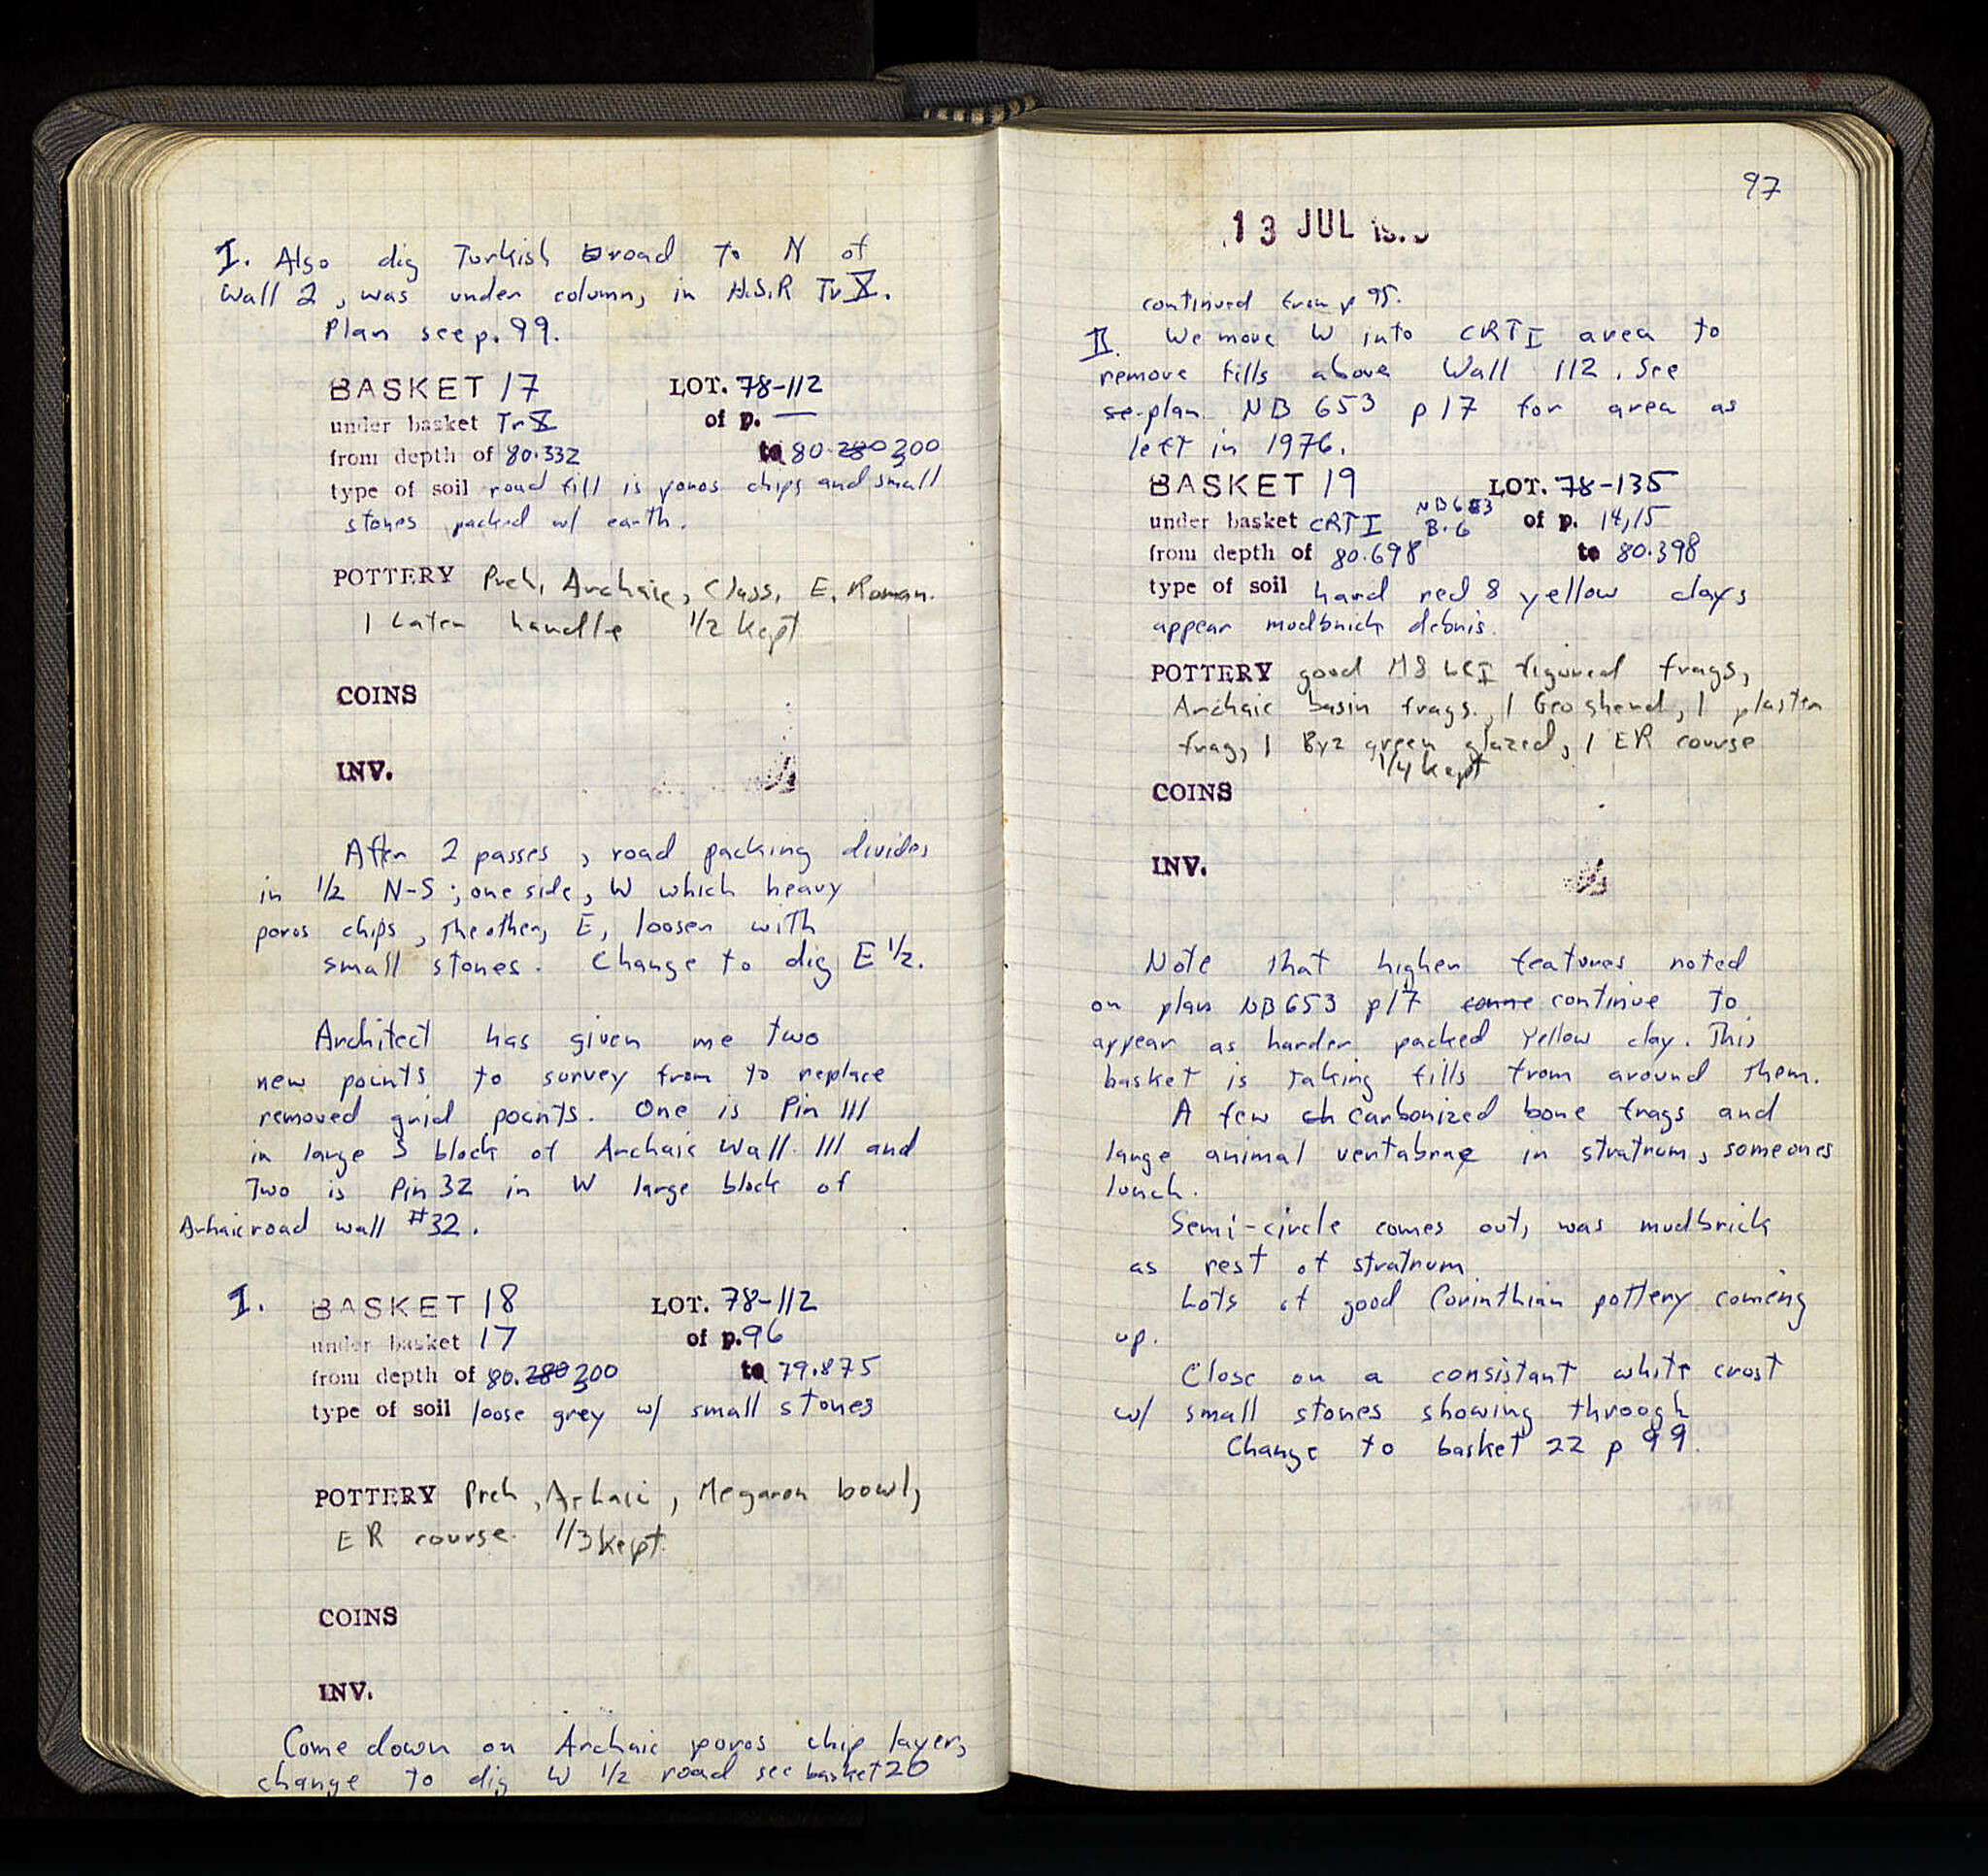 I. Also dig Turkish road to N of
Wall 2, was under column, in N.S.R Tr X.
Plan see p. 99.
BASKET 17 LOT. 78-112
under basket Tr X of p. —
from depth of 80.332 to 80.280 200
type of soil road fill is poros chips and small
stones packed w/ earth.
POTTERY Preh, Archaic, Class, E. Roman.
1 Later handle 1/2 kept
COINS
INV.
After 2 passes, road packing divides
in 1/2 N-S; one side, W which heavy
poros chips, The other, E, loosen with
small stones. Change to dig E 1/2.
Architect has given me two
new points to survey from to replace
removed grid points. One is Pin 111
in large S block of Archaic Wall 111 and
Two is Pin 32 in W large block of
Arhaic road wall #32.
I. BASKET 18 LOT. 78-112
under basket 17 of p. 96
from depth of 80.280 200 to 79.875
type of soil loose grey w/ small stones
POTTERY Preh, Arhaic, Megaron bowl,
ER course. 1/3 kept.
COINS
INV.
Come down on Archaic poros chip layer,
change to dig W 1/2 road see basket 20
97
13 JUL
continued from p 95.
II. We move W into CRT I area to
remove fills above Wall 112. See
se plan NB 653 p 17 for area as
left in 1976.
BASKET 19 LOT. 78-135
under basket CRT I NB 653 B.6 of p. 14,15
from depth of 80.698 to 80.398
type of soil hard red & yellow clays
appear mudbrick debris.
POTTERY good M & LC I figured frags,
Archaic basin frags., 1 Geo sherd, 1 plaster
frag, 1 Byz green glazed, 1 ER course
1/4 kept
COINS
INV.
Note that higher features noted
on plan NB 653 p 17 conne continue to
appear as harder packed yellow clay. This
basket is taking fills from around them.
A few ch carbonized bone frags and
large animal vertabrae in stratrum, someones
lunch.
Semi-circle comes out, was mudbrick
as rest of stratrum
Lots of good Corinthian pottery comeing
up.
Close on a consistant white crust
w/ small stones showing through
Change to basket 22 p 99.